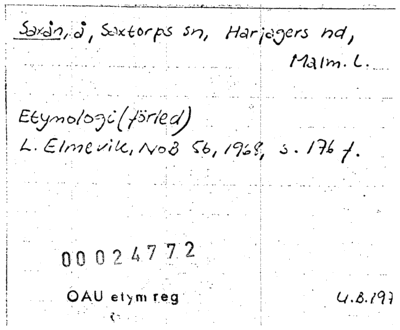 Saxån, å, Saxtorps sn, Harjagers hd,
Malm. L.
Etymologi (förled)
L. Elmevik, NoB 56, 1968, s. 176 f.
00024772
OAU etym reg
U.B. 197